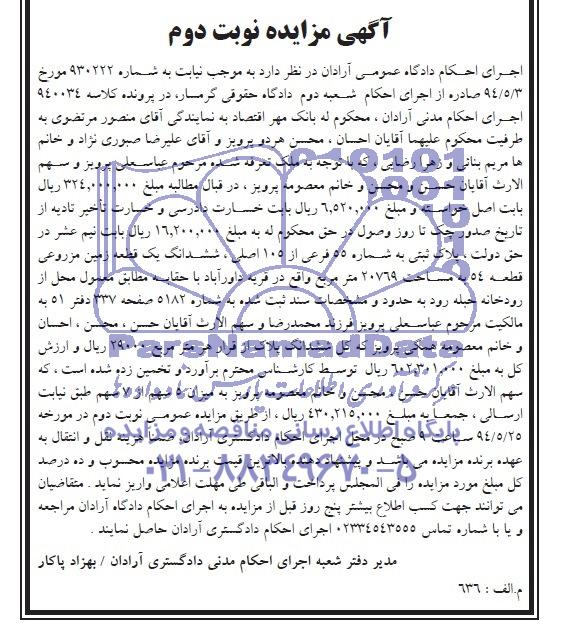 آگهی مزایده نوبت دوم
اجرای احکام دادگاه عمومی آرادان در نظر دارد به موجب نیابت به شماره ۹۳۰۲۲۲ مورخ
۹۴/۵/۳ صادره از اجرای احکام شعبه دوم دادگاه حقوقی گرمسار، در پرونده کلاسه ۹۴۰۰۳۴
اجرای احکام مدنی آرادان ، محکوم له بانک مهر اقتصاد به نمایندگی آقای منصور مرتضوی به
طرفیت محکوم علیهما آقایان احسان ، محسن هردو پرویز و آقای علیرضا صبوری نژاد و خانم
ها مریم بنائی و زهرا رضایی ، که با توجه به ملک تعرفه شده مرحوم عباسعلی پرویز و سهم
الارث آقایان حسن و محسن و خانم معصومه پرویز ، در قبال مطالبه مبلغ ۳۲۴,۰۰۰,۰۰۰ ریال
بابت اصل خواسته و مبلغ ۶,۵۲۰,۰۰۰ ریال بابت خسارت دادرسی و خسارت تأخیر تادیه از
تاریخ صدور چک تا روز وصول در حق محکوم له به مبلغ ۱۶,۲۰۰,۰۰۰ ریال بابت نیم عشر در
حق دولت ، پلاک ثبتی به شماره ۵۵ فرعی از ۱۰۵ اصلی ، ششدانگ یک قطعه زمین مزروعی
قطعه ۵۴ به مساحت ۲۰۷۶۹ متر مربع واقع در قریه داورآباد با حقابه مطابق معمول محل از
رودخانه حبله رود به حدود و مشخصات سند ثبت شده به شماره ۵۱۸۲ صفحه ۳۳۷ دفتر ۵۱ به
مالکیت مرحوم عباسعلی پرویز فرزند محمدرضا و سهم الارث آقایان حسن ، محسن ، احسان
و خانم معصومه همگی پرویز که کل ششدانگ پلاک از قرار هر متر مربع ۲۹۰۰۰ ریال و ارزش
کل به مبلغ ۶۰۲,۳۰۱,۰۰۰ ریال توسط کارشناس محترم برآورد و تخمین زده شده است ، که
سهم الارث آقایان حسن و محسن و خانم معصومه پرویز به میزان ۵ سهم از ۷ سهم طبق نیابت
ارسالی ، جمعا به مبلغ ۴۳۰,۲۱۵,۰۰۰ ریال ، از طریق مزایده عمومی نوبت دوم در مورخه
۹۴/۵/۲۵ ساعت ۹ صبح در محل اجرای احکام دادگستری آرادان، ضمنا هزینه نقل و انتقال به
عهده برنده مزایده می باشد و پیشنهاد دهنده بالاترین قیمت برنده مزایده محسوب و ده درصد
کل مبلغ مورد مزایده را فی المجلس پرداخت و الباقی طی مهلت اعلامی واریز نماید . متقاضیان
می توانند جهت کسب اطلاع بیشتر پنج روز قبل از مزایده به اجرای احکام دادگاه آرادان مراجعه
و یا با شماره تماس ۰۲۳۳۴۵۴۳۵۵۵ اجرای احکام دادگستری آرادان حاصل نمایند .
مدیر دفتر شعبه اجرای احکام مدنی دادگستری آرادان / بهزاد پاکار
م.الف : ۶۳۶
ParsNamadData
گردآوری اطلاعات پارس نماد داده ها
پایگاه اطلاع رسانی مناقصه و مزایده
۰۲۱-۸۸۳۴۹۶۷۰-۵